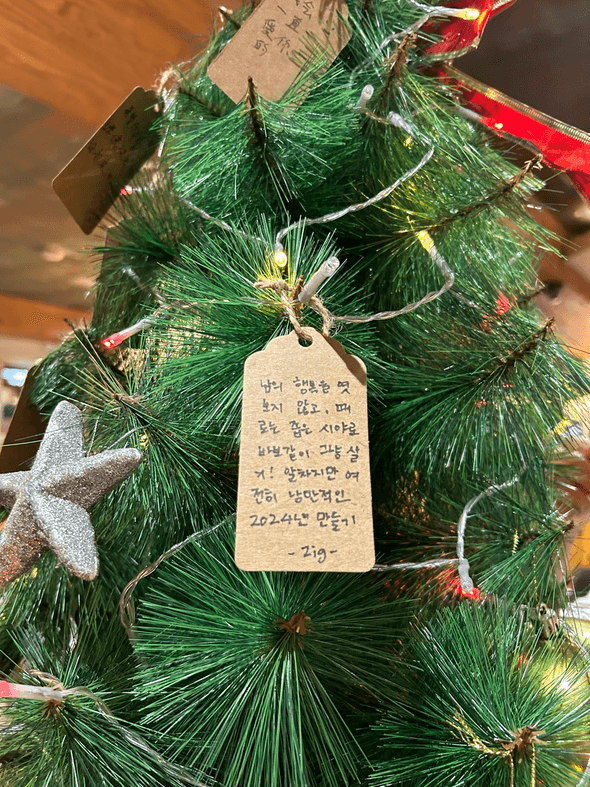 남의 행복을 엿
보지 않고, 때
로는 좁은 시야로
바보같이 그냥 살
기! 알하지만 여
전히 낭만적인
2024년 만들기
- Zig -